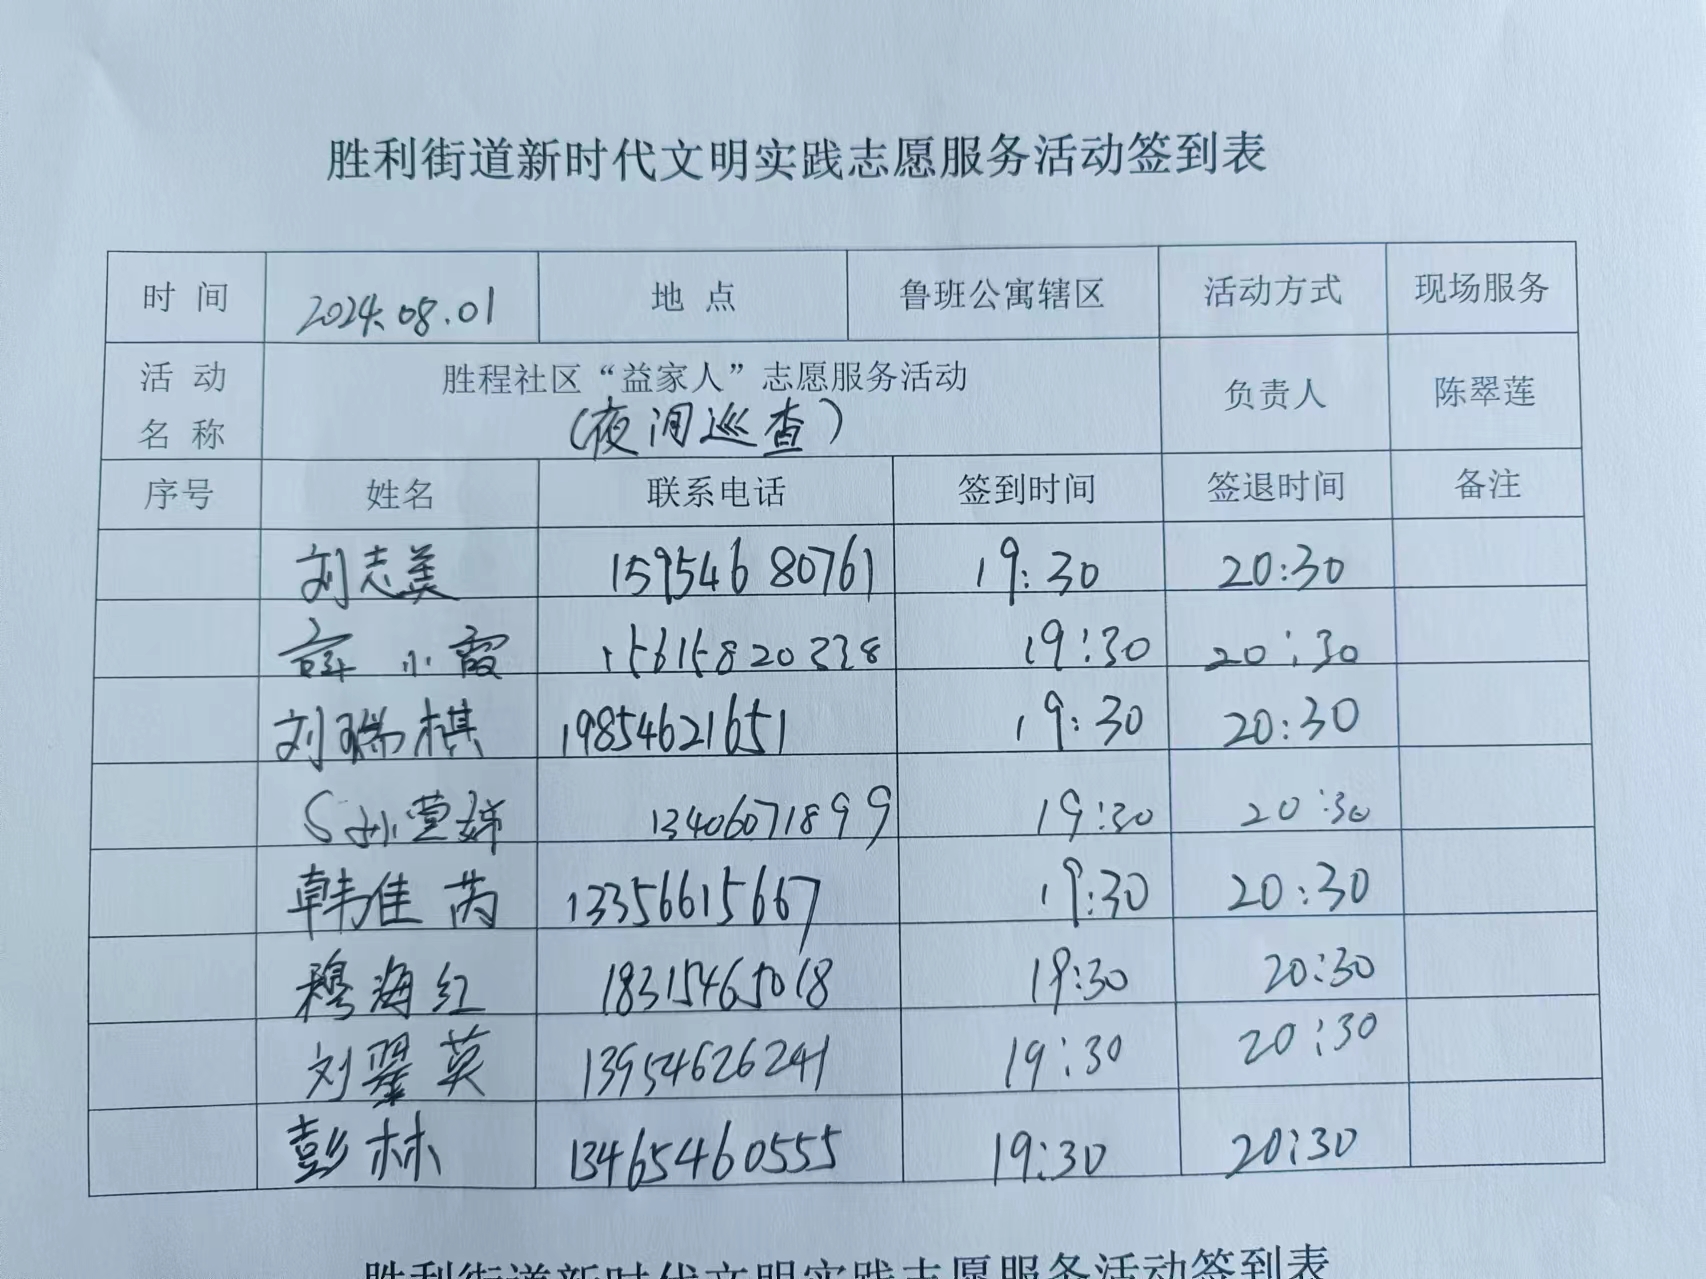 胜利街道新时代文明实践志愿服务活动签到表
时 间 2024.08.01 地 点 鲁班公寓辖区 活动方式 现场服务
活 动 名 称 胜程社区“益家人”志愿服务活动 负责人 陈翠莲
(夜间巡查)
序号 姓名 联系电话 签到时间 签退时间 备注
刘志美 15954680761 19:30 20:30
薛小霞 15615820338 19:30 20:30
刘瑞棋 19854621651 19:30 20:30
孙萱娣 13406071899 19:30 20:30
韩佳芮 13356615667 19:30 20:30
穆海红 18315465018 19:30 20:30
刘翠英 13954626241 19:30 20:30
彭林 13465460555 19:30 20:30
胜利街道新时代文明实践志愿服务活动签到表